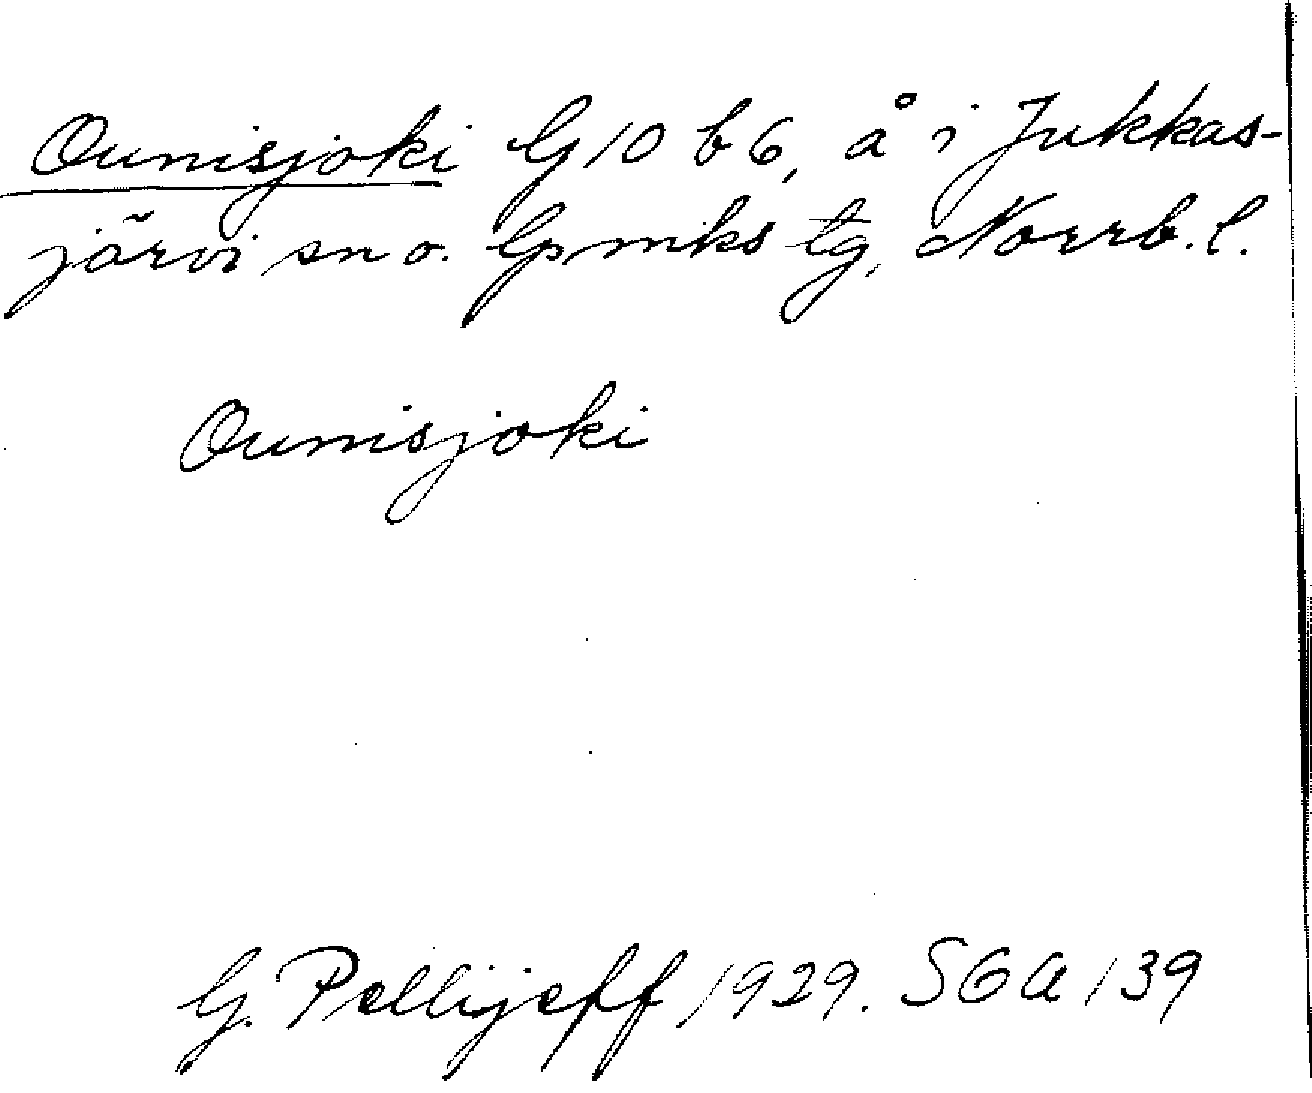 Ounisjoki G 10 b 6, å i Jukkas-
järvi sn o. lpmks tg, Norrb. l.
Ounisjoki
G. Pellijeff 1929. SGA 139